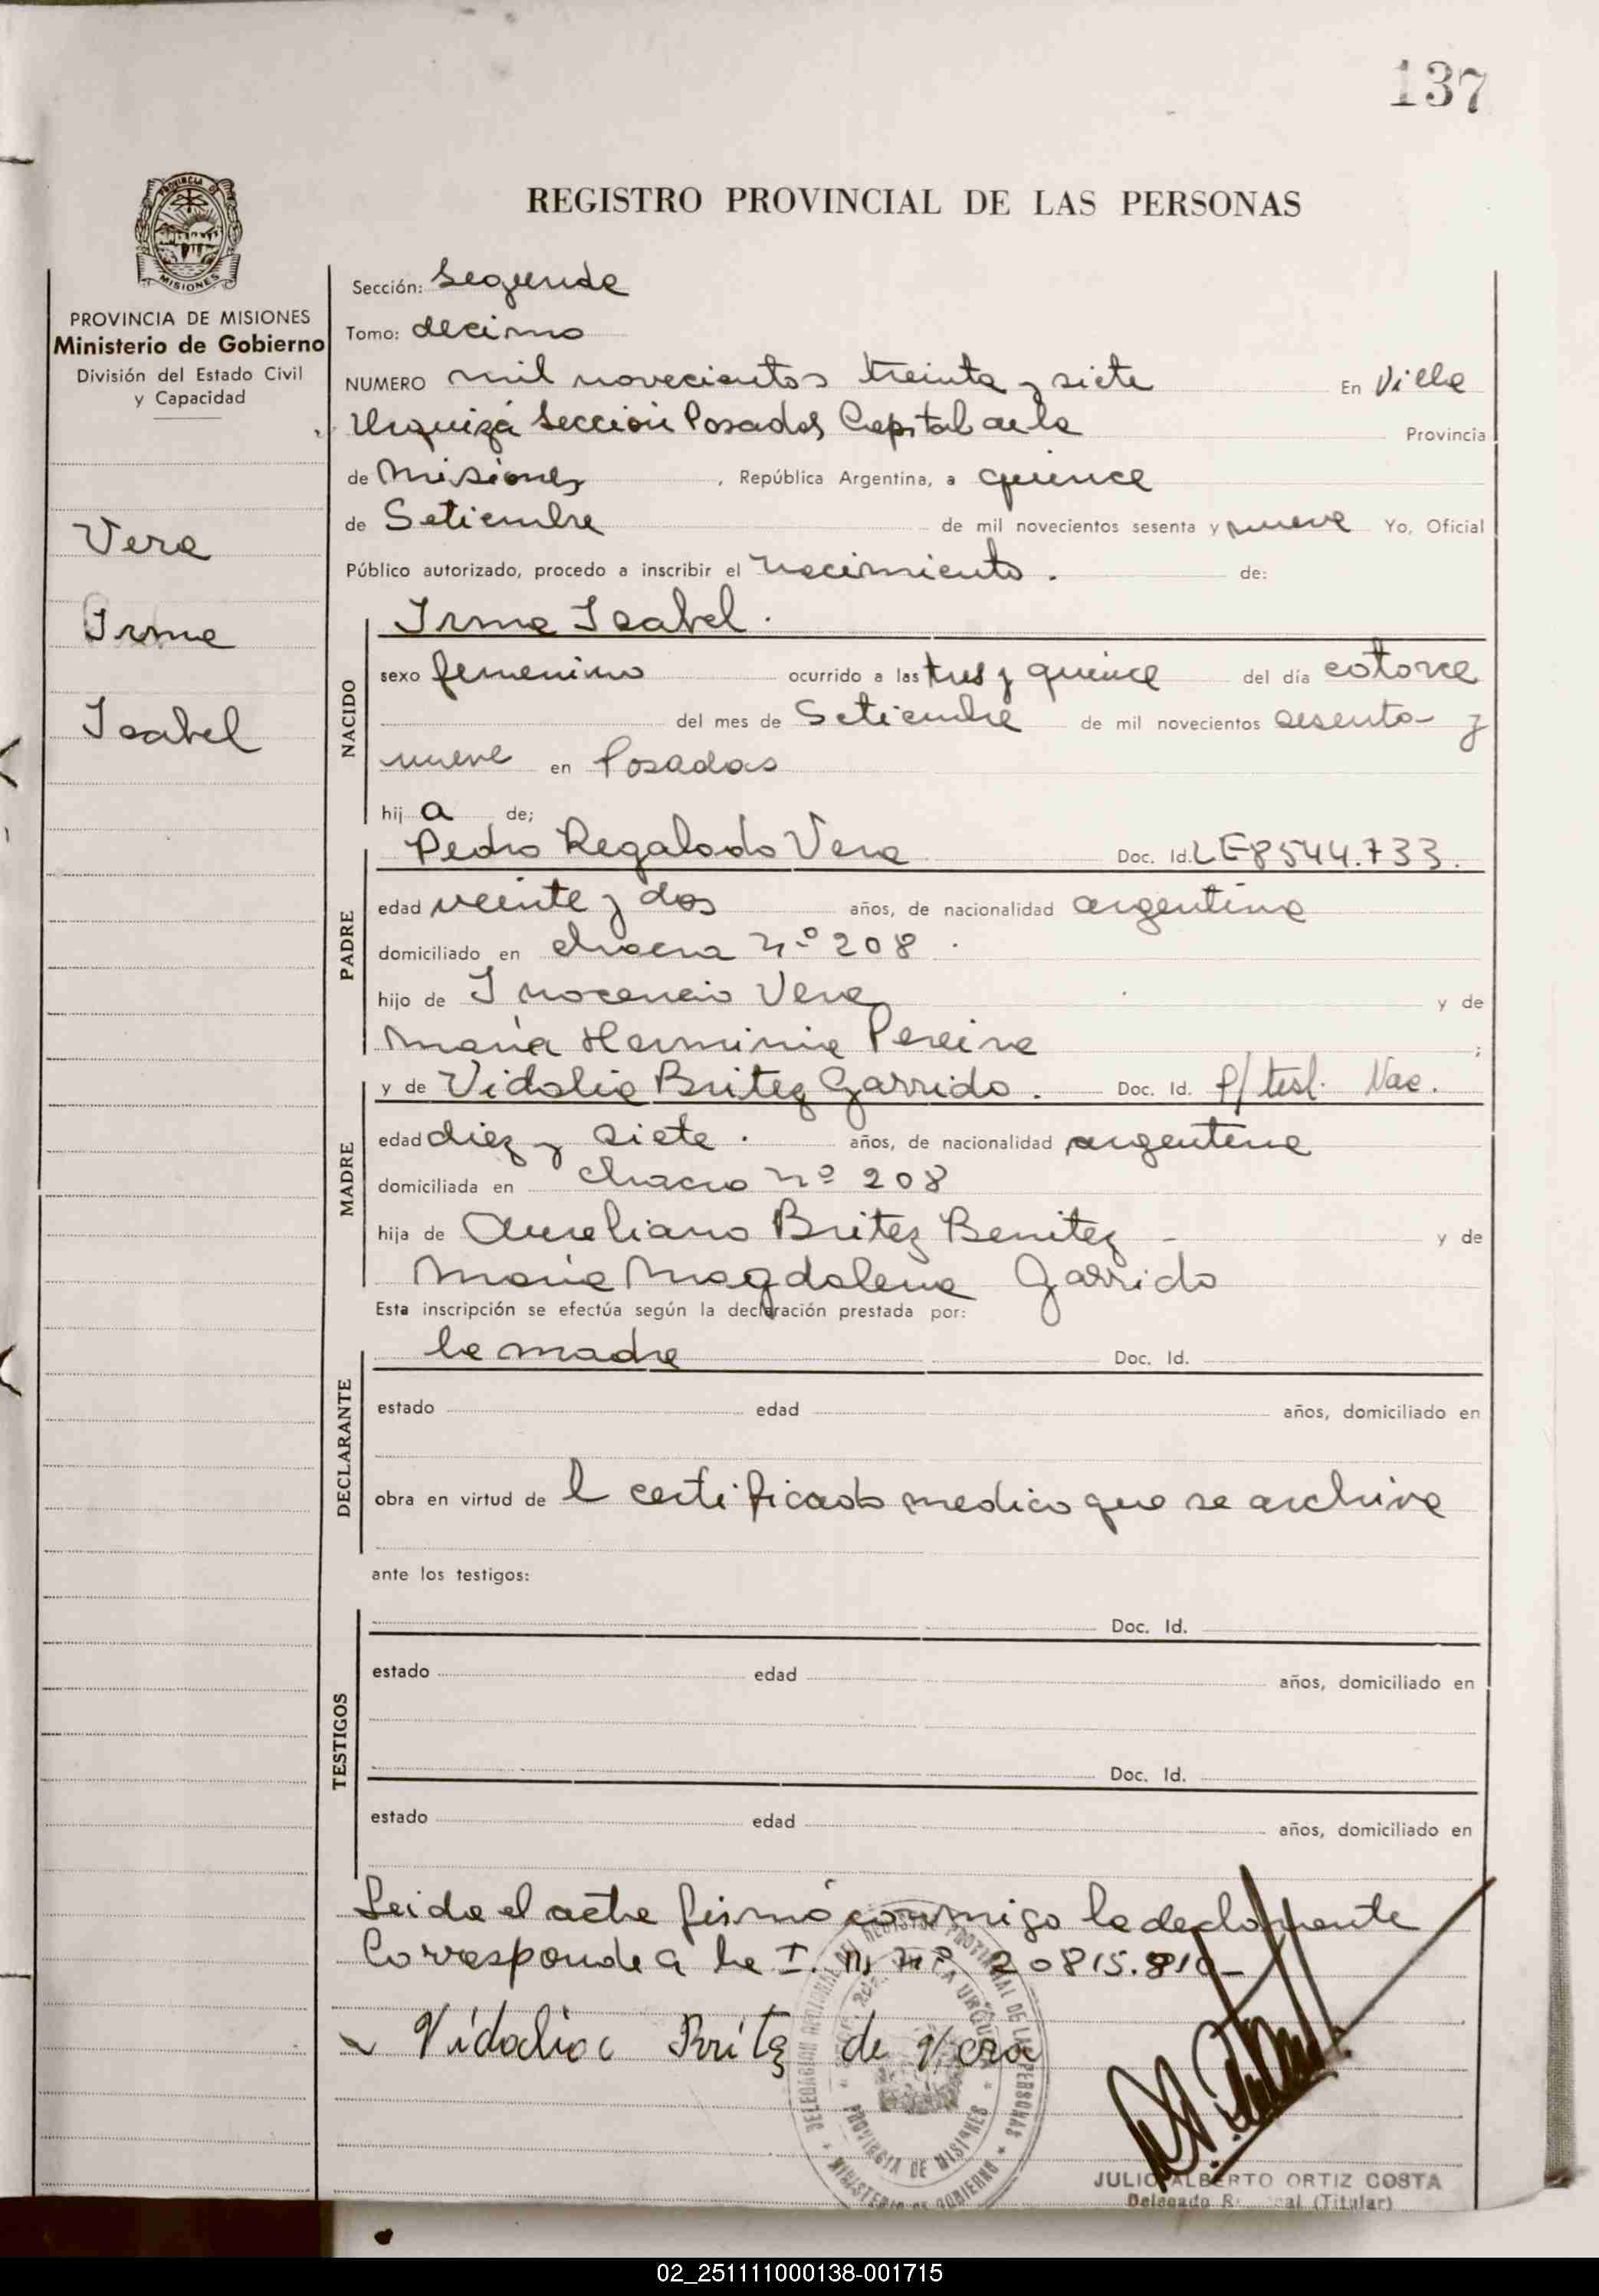 137
REGISTRO PROVINCIAL DE LAS PERSONAS
PROVINCIA DE MISIONES
Ministerio de Gobierno
División del Estado Civil
y Capacidad
Vera
Irma
Isabel
Sección: Segunda
Tomo: decimo
NUMERO mil novecientos treinta y siete En Villa
Urquiza Sección Posadas Capital de la Provincia
de Misiones, República Argentina, a quince
de Setiembre de mil novecientos sesenta y nueve Yo, Oficial
Público autorizado, procedo a inscribir el nacimiento. de:
NACIDO
Irma Isabel.
sexo femenino ocurrido a las tres y quince del día catorce
del mes de Setiembre de mil novecientos sesenta y
nueve en Posadas
hij a de;
PADRE
Pedro Regalado Vera Doc. Id. LE8544.733.
edad veinte y dos años, de nacionalidad argentina
domiciliado en chacra nº 208.
hijo de Inocencio Vera y de
María Herminia Pereira ;
MADRE
y de Vidalia Britez Garrido. Doc. Id. P/ test. Nac.
edad diez y siete. años, de nacionalidad argentina
domiciliada en chacra nº 208
hija de Aureliano Britez Benitez - y de
María Magdalena Garrido
Esta inscripción se efectúa según la declaración prestada por:
DECLARANTE
la madre Doc. Id.
estado edad años, domiciliado en
obra en virtud de l certificado medico que se archiva
ante los testigos:
TESTIGOS
Doc. Id.
estado edad años, domiciliado en
Doc. Id.
estado edad años, domiciliado en
Leida el acta firmó conmigo la declarante
Corresponde a la I. M nº 20815.810-
Vidalia Britez de Vera
DELEGACION REGIONAL DEL REGISTRO PROVINCIAL DE LAS PERSONAS
PROVINCIA DE MISIONES
MINISTERIO DE GOBIERNO
JULIO ALBERTO ORTIZ COSTA
Delegado (Titular)
02_251111000138-001715